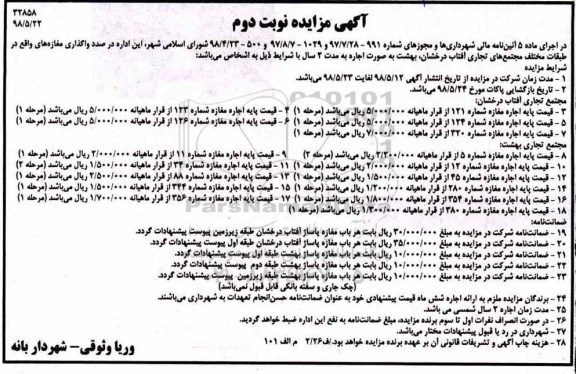 ۳۲۸۵۸
۹۸/۵/۲۲
آگهی مزایده نوبت دوم
در اجرای ماده ۵ آئین‌نامه مالی شهرداری‌ها و مجوزهای شماره ۹۹۱ - ۹۷/۷/۲۸ و ۱۰۲۹ - ۹۷/۸/۷ و ۵۰۰ - ۹۸/۴/۲۳ شورای اسلامی شهر، این اداره در صدد واگذاری مغازه‌های واقع در
طبقات مختلف مجتمع‌های تجاری آفتاب درخشان، بهشت به صورت اجاره به مدت ۲ سال با شرایط ذیل به اشخاص می‌باشد:
شرایط مزایده
۱ - مدت زمان شرکت در مزایده از تاریخ انتشار آگهی ۹۸/۵/۱۲ لغایت ۹۸/۵/۲۳ می‌باشد.
۲ - تاریخ بازگشایی پاکات مورخ ۹۸/۵/۲۴ می‌باشد.
مجتمع تجاری آفتاب درخشان:
۳ - قیمت پایه اجاره مغازه شماره ۱۲۱ از قرار ماهیانه ۵/۰۰۰/۰۰۰ ریال می‌باشد (مرحله ۱) ۴ - قیمت پایه اجاره مغازه شماره ۱۲۳ از قرار ماهیانه ۵/۰۰۰/۰۰۰ ریال می‌باشد (مرحله ۱)
۵ - قیمت پایه اجاره مغازه شماره ۱۲۴ از قرار ماهیانه ۵/۰۰۰/۰۰۰ ریال می‌باشد (مرحله ۱) ۶ - قیمت پایه اجاره مغازه شماره ۱۲۶ از قرار ماهیانه ۵/۰۰۰/۰۰۰ ریال می‌باشد (مرحله ۱)
۷ - قیمت پایه اجاره مغازه شماره ۳۲۰ از قرار ماهیانه ۷/۰۰۰/۰۰۰ ریال می‌باشد (مرحله ۱)
مجتمع تجاری بهشت:
۸ - قیمت پایه اجاره مغازه شماره ۵ از قرار ماهیانه ۲/۲۰۰/۰۰۰ ریال می‌باشد (مرحله ۲) ۹ - قیمت پایه اجاره مغازه شماره ۱۱ از قرار ماهیانه ۲/۰۰۰/۰۰۰ ریال می‌باشد (مرحله ۱)
۱۰ - قیمت پایه اجاره مغازه شماره ۱۲ از قرار ماهیانه ۲/۰۰۰/۰۰۰ ریال می‌باشد (مرحله ۱) ۱۱ - قیمت پایه اجاره مغازه شماره ۳۴ از قرار ماهیانه ۱/۵۰۰/۰۰۰ ریال می‌باشد (مرحله ۲)
۱۲ - قیمت پایه اجاره مغازه شماره ۴۵ از قرار ماهیانه ۱/۵۰۰/۰۰۰ ریال می‌باشد (مرحله ۱) ۱۳ - قیمت پایه اجاره مغازه شماره ۸۸ از قرار ماهیانه ۲/۵۰۰/۰۰۰ ریال می‌باشد (مرحله ۲)
۱۴ - قیمت پایه اجاره مغازه شماره ۲۸۰ از قرار ماهیانه ۱/۲۰۰/۰۰۰ ریال می‌باشد (مرحله ۱) ۱۵ - قیمت پایه اجاره مغازه شماره ۳۴۴ از قرار ماهیانه ۱/۵۰۰/۰۰۰ ریال می‌باشد (مرحله ۱)
۱۶ - قیمت پایه اجاره مغازه شماره ۳۵۴ از قرار ماهیانه ۱/۸۰۰/۰۰۰ ریال می‌باشد (مرحله ۱) ۱۷ - قیمت پایه اجاره مغازه شماره ۳۵۶ از قرار ماهیانه ۱/۷۰۰/۰۰۰ ریال می‌باشد (مرحله ۱)
۱۸ - قیمت پایه اجاره مغازه شماره ۳۸۰ از قرار ماهیانه ۱/۳۰۰/۰۰۰ ریال می‌باشد (مرحله ۱)
ضمانت‌نامه:
۱۹ - ضمانت‌نامه شرکت در مزایده به مبلغ ۳۰/۰۰۰/۰۰۰ ریال بابت هر باب مغازه پاساژ آفتاب درخشان طبقه زیرزمین پیوست پیشنهادات گردد.
۲۰ - ضمانت‌نامه شرکت در مزایده به مبلغ ۳۵/۰۰۰/۰۰۰ ریال بابت هر باب مغازه پاساژ آفتاب درخشان طبقه اول پیوست پیشنهادات گردد.
۲۱ - ضمانت‌نامه شرکت در مزایده به مبلغ ۱۰/۰۰۰/۰۰۰ ریال بابت هر باب مغازه پاساژ بهشت طبقه اول پیوست پیشنهادات گردد.
۲۲ - ضمانت‌نامه شرکت در مزایده به مبلغ ۱۰/۰۰۰/۰۰۰ ریال بابت هر باب مغازه پاساژ بهشت طبقه دوم پیوست پیشنهادات گردد.
۲۳ - ضمانت‌نامه شرکت در مزایده به مبلغ ۱۰/۰۰۰/۰۰۰ ریال بابت هر باب مغازه پاساژ بهشت طبقه زیرزمین پیوست پیشنهادات گردد.
(چک جاری و سفته بانکی قابل قبول نمی‌باشد)
۲۴ - برندگان مزایده ملزم به ارائه اجاره شش ماه قیمت پیشنهادی خود به عنوان ضمانت‌نامه حسن‌انجام تعهدات به شهرداری می‌باشند.
۲۵ - مدت زمان اجاره ۲ سال شمسی می باشد.
۲۶ - در صورت انصراف نفرات اول تا سوم برنده مزایده، مبلغ ضمانت‌نامه به نفع این اداره ضبط خواهد گردید.
۲۷ - شهرداری در رد یا قبول پیشنهادات مختار می‌باشد.
۲۸ - هزینه چاپ آگهی و تشریفات قانونی آن بر عهده برنده مزایده خواهد بود./ف۲/۲۶ م الف ۱۰۱
وریا وثوقی - شهردار بانه